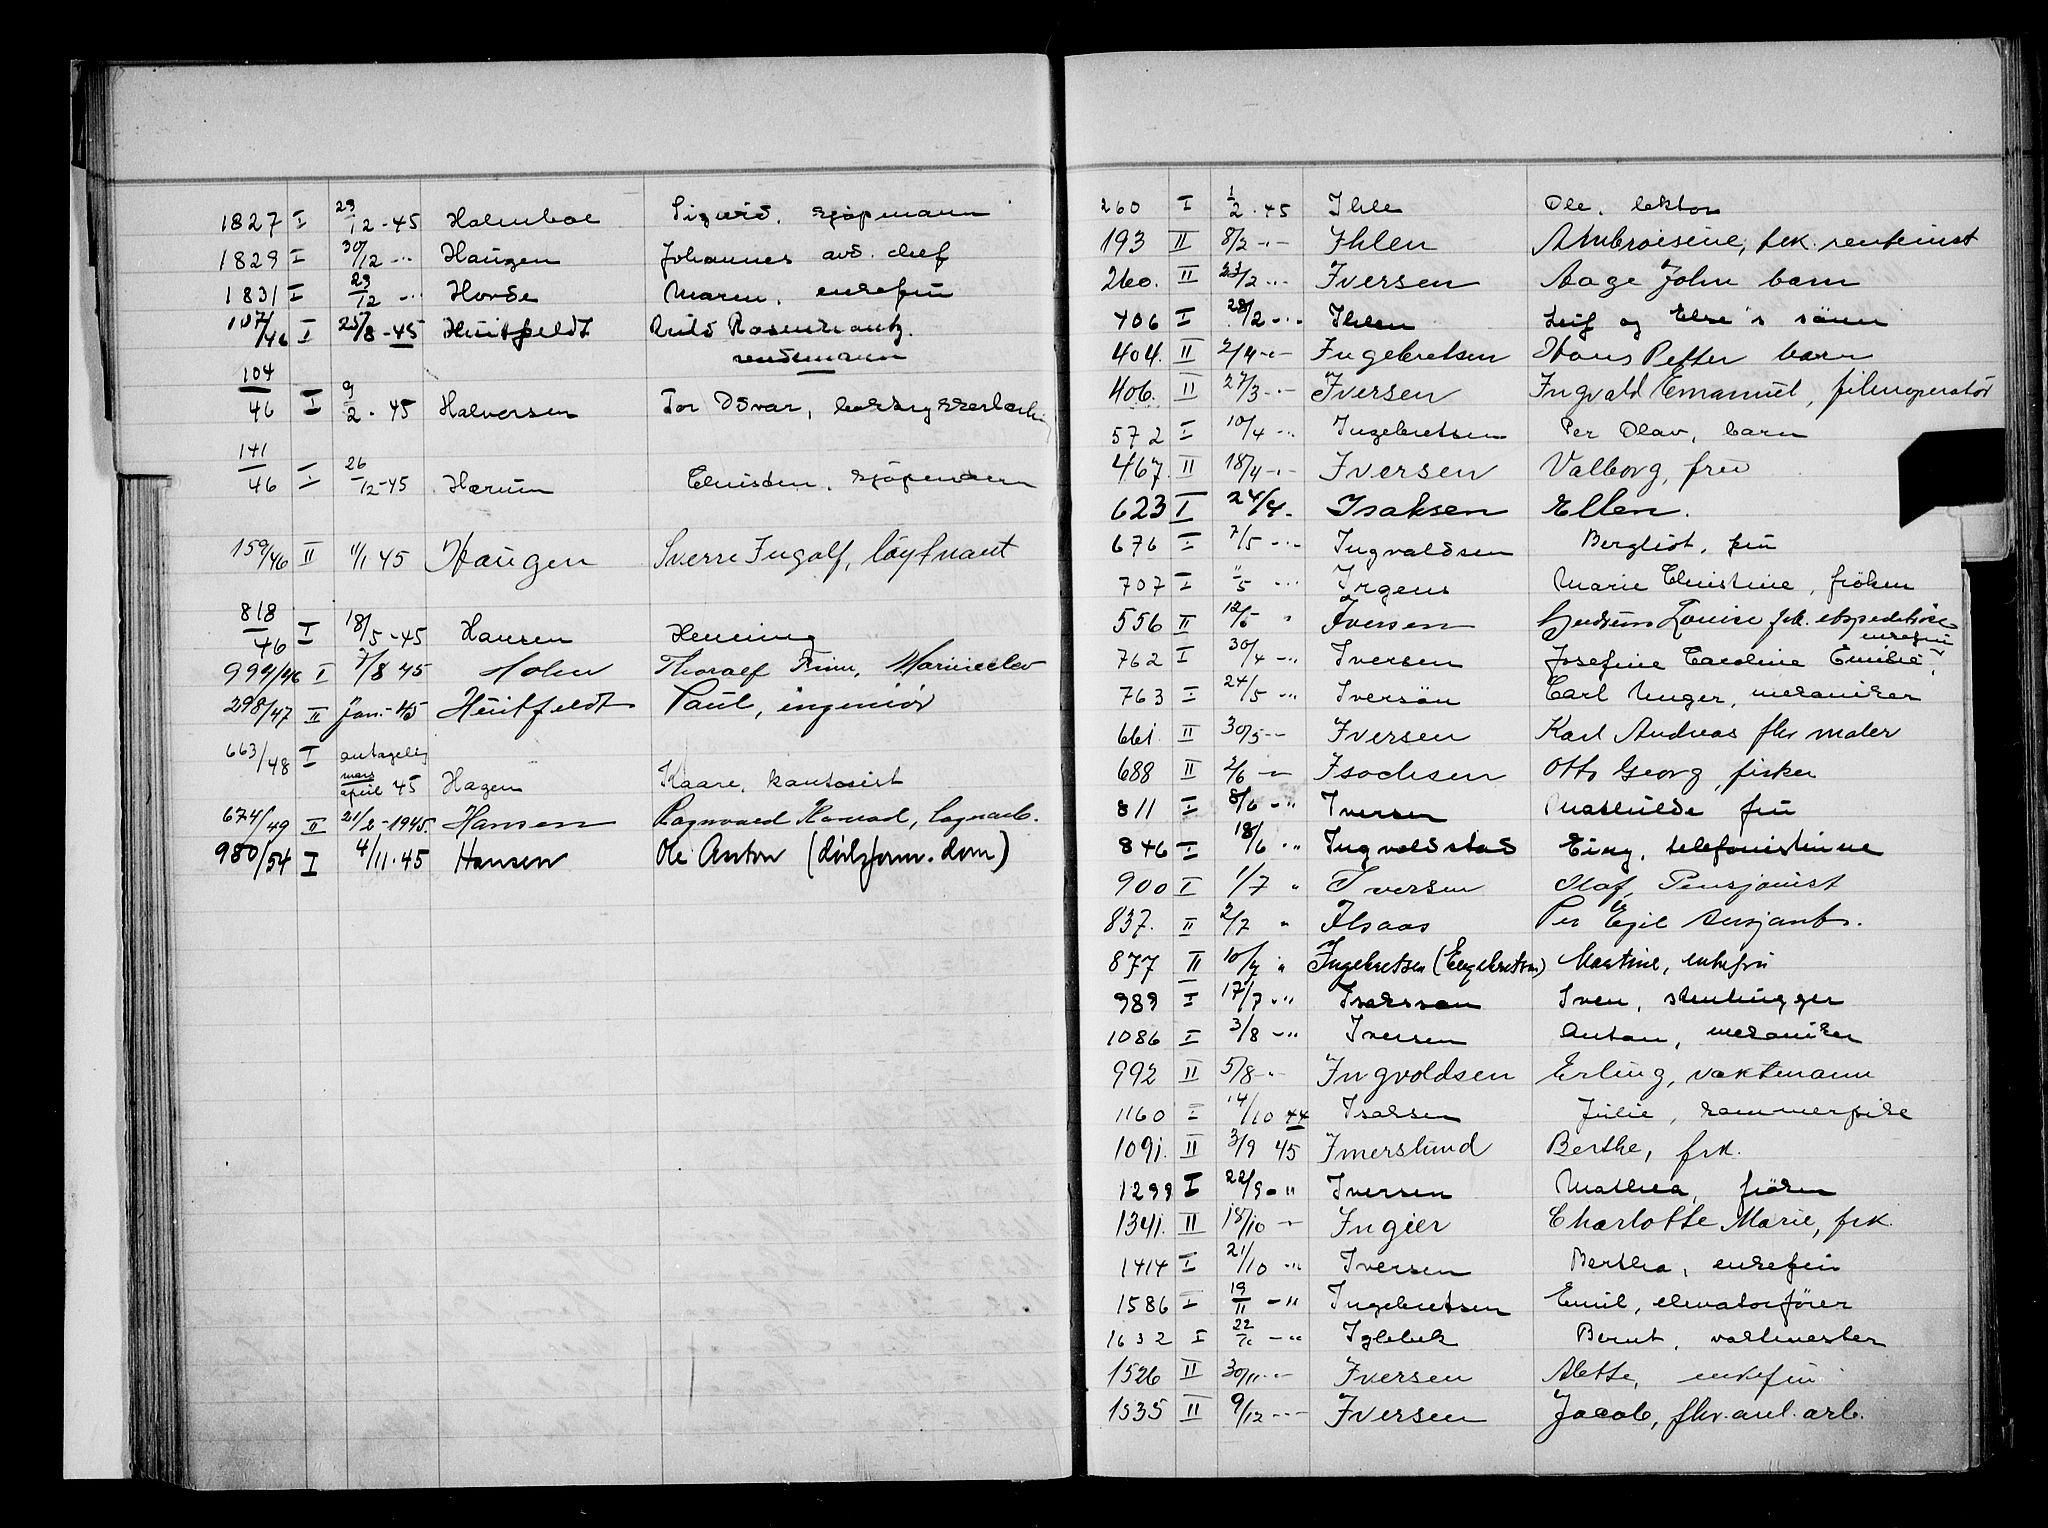 1827 I 29/12-45 Holmboe Sigurd, sjøpmann
1829 I 30/12 -"- Haugen Johannes avd. chef
1831 I 29/12 -"- Hovde Maren, enkefru
107/46 I 25/8-45 Huitfeldt Arild Rosenkrantz.
vendemann
104/46 I 9/2-45 Halvorsen Tor Osvar,
141/46 I 26/12-45 Hærum Christen,
159/46 II 11/1 45 Haugen Sverre Ingolf, løytnant
818/46 I 18/5-45 Hansen Henning
999/46 I 7/8 45 Holm Thoralf Finn, Marineelev
298/47 II Jan. 45 Huitfeldt Paul, ingeniør
663/48 I antagelig
mars
april 45 Hagen Kaare, kontorist
674/49 II 21/2-1945. Hansen Ragnvald Konrad, lagerarb.
980/54 I 4/11.45 Hansen Ole Anton (dødsform. dom)
260 I 1/2.45 Ihle Ole, lektor
193 II 8/2 -"- Ihlen Ambroisine, frk. rentenist
260. II 23/2 -"- Iversen Aage John barn
406 I 28/2 -"- Ihlen Leif og Else's sønn
404. II 2/4 -"- Ingebretsen Hans Petter barn
406. II 27/3 -"- Iversen Ingvald Emanuel, filmoperatør
572 I 10/4 -"- Ingebretsen Per Olav, barn
467. II 18/4 -"- Iversen Valborg, frue
623 I 24/4 - Isaksen Ellen.
676 I 7/5 -"- Ingvaldsen Bergliot, fru
707 I "/5 -"- Irgens Marie Christine, frøken
556 II 12/5 " Iversen Gudrun Louise frk. ekspeditrise
enkefru
762 I 30/4 -"- Iversen Josefine Caroline Emilie,
763 I 24/5 -"- Iversøn Carl Unger, mekaniker
661. II 30/5 -"- Iversen Karl Andreas fhv maler
688 II 2/6 -"- Isochsen Otto Georg, fisker
811 I 8/6 -"- Iversen Mathilde fru
846 I 18/6 -"- Ingvaldstad Einy, telefonistinne
900 I 1/7 " Iversen Olaf, Pensjonist
837. II 2/7 " Ilsaas Per Egil
877 II 10/7 " Ingebretsen (Engebretsen) Martine, enkefru
989 I 17/7 -"- Isaksson Sven, stenhugger
1086 I 3/8 -"- Iversen Anton, mekaniker
992 II 5/8 -"- Ingvoldsen Erling, vaktmann
1160 I 14/10 44 Isaksen Julie, kammerpike
1091. II 3/9 45 Imerslund Berthe, frk.
1299 I 22/9 -"- Iversen Mathea, frøken
1341. II 15/10 -"- Ingier Charlotte Marie, frk.
1414 I 21/10 -"- Iversen Bertha, enkefru
1586 I 19/11 -"- Ingebretsen Emil, elevatorfører
1632 I 22/11 -"- Igleliek Bernt, vaktmester
1526 II 30/11 -"- Iversen Alette, enkefru
1535 II 9/12 -"- Iversen Jacob, fhv. anl. arb.